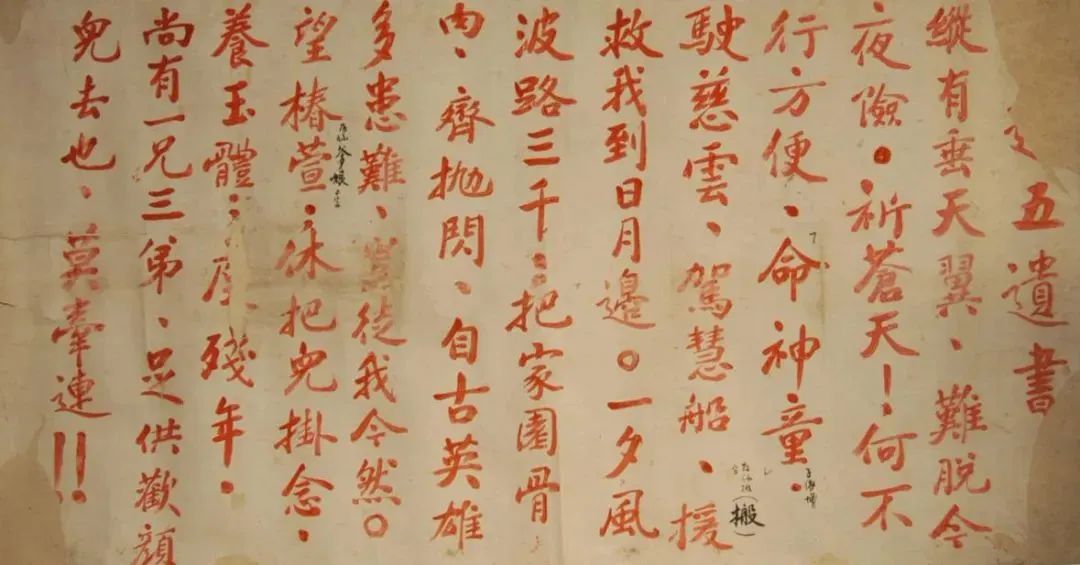 五遺書
縱有垂天翼、難脫今
夜險。祈蒼天!何不
行方便、命神童.
駛慈雲、駕慧船、援
(搬)
救我到日月邊。一夕風
波路三千:把家園骨
肉、齊拋閃、自古英雄
多患難、徒我今然。
望椿萱.休把兒掛念.
養玉體:度殘年.
尚有一兄三弟、足供歡顏
兒去也、莫牽連!!